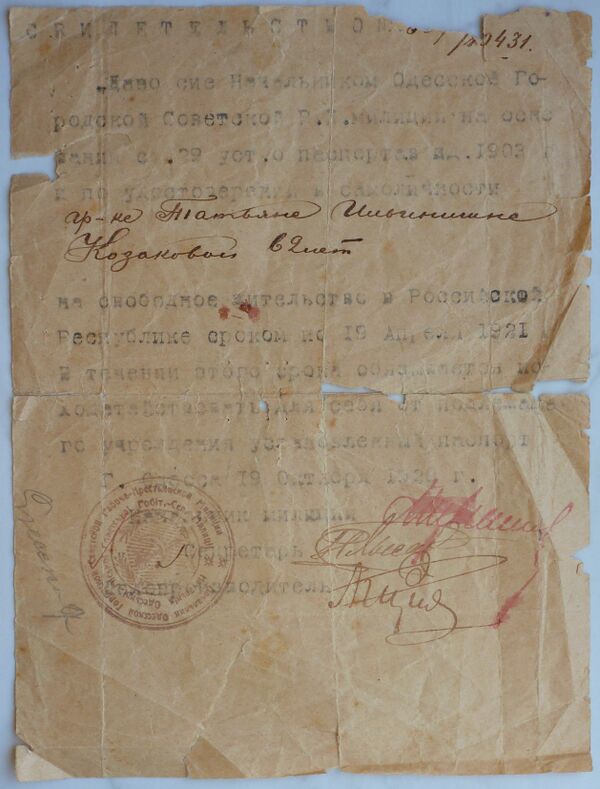 СВИДЕТЕЛЬСТВО №
Дано сие Начальником Одесской Го-
родской Советской Р.К.милиции на осно
вании ст.29 уст.о паспортах изд.1903 г
и по удостоверении в самоличности
гр-не Татьяне Ильинишне
Козаковой 62 лет
на свободное жительство в Российской
Республике сроком по 19 Апреля 1921 г
В течении этого срока обязывается по-
ходатайствовать для себя от подлежаще-
го учреждения установленный паспорт
Г. Одесса 19 Октября 1920 г.
Начальник милиции
Секретарь
Делопроизводитель